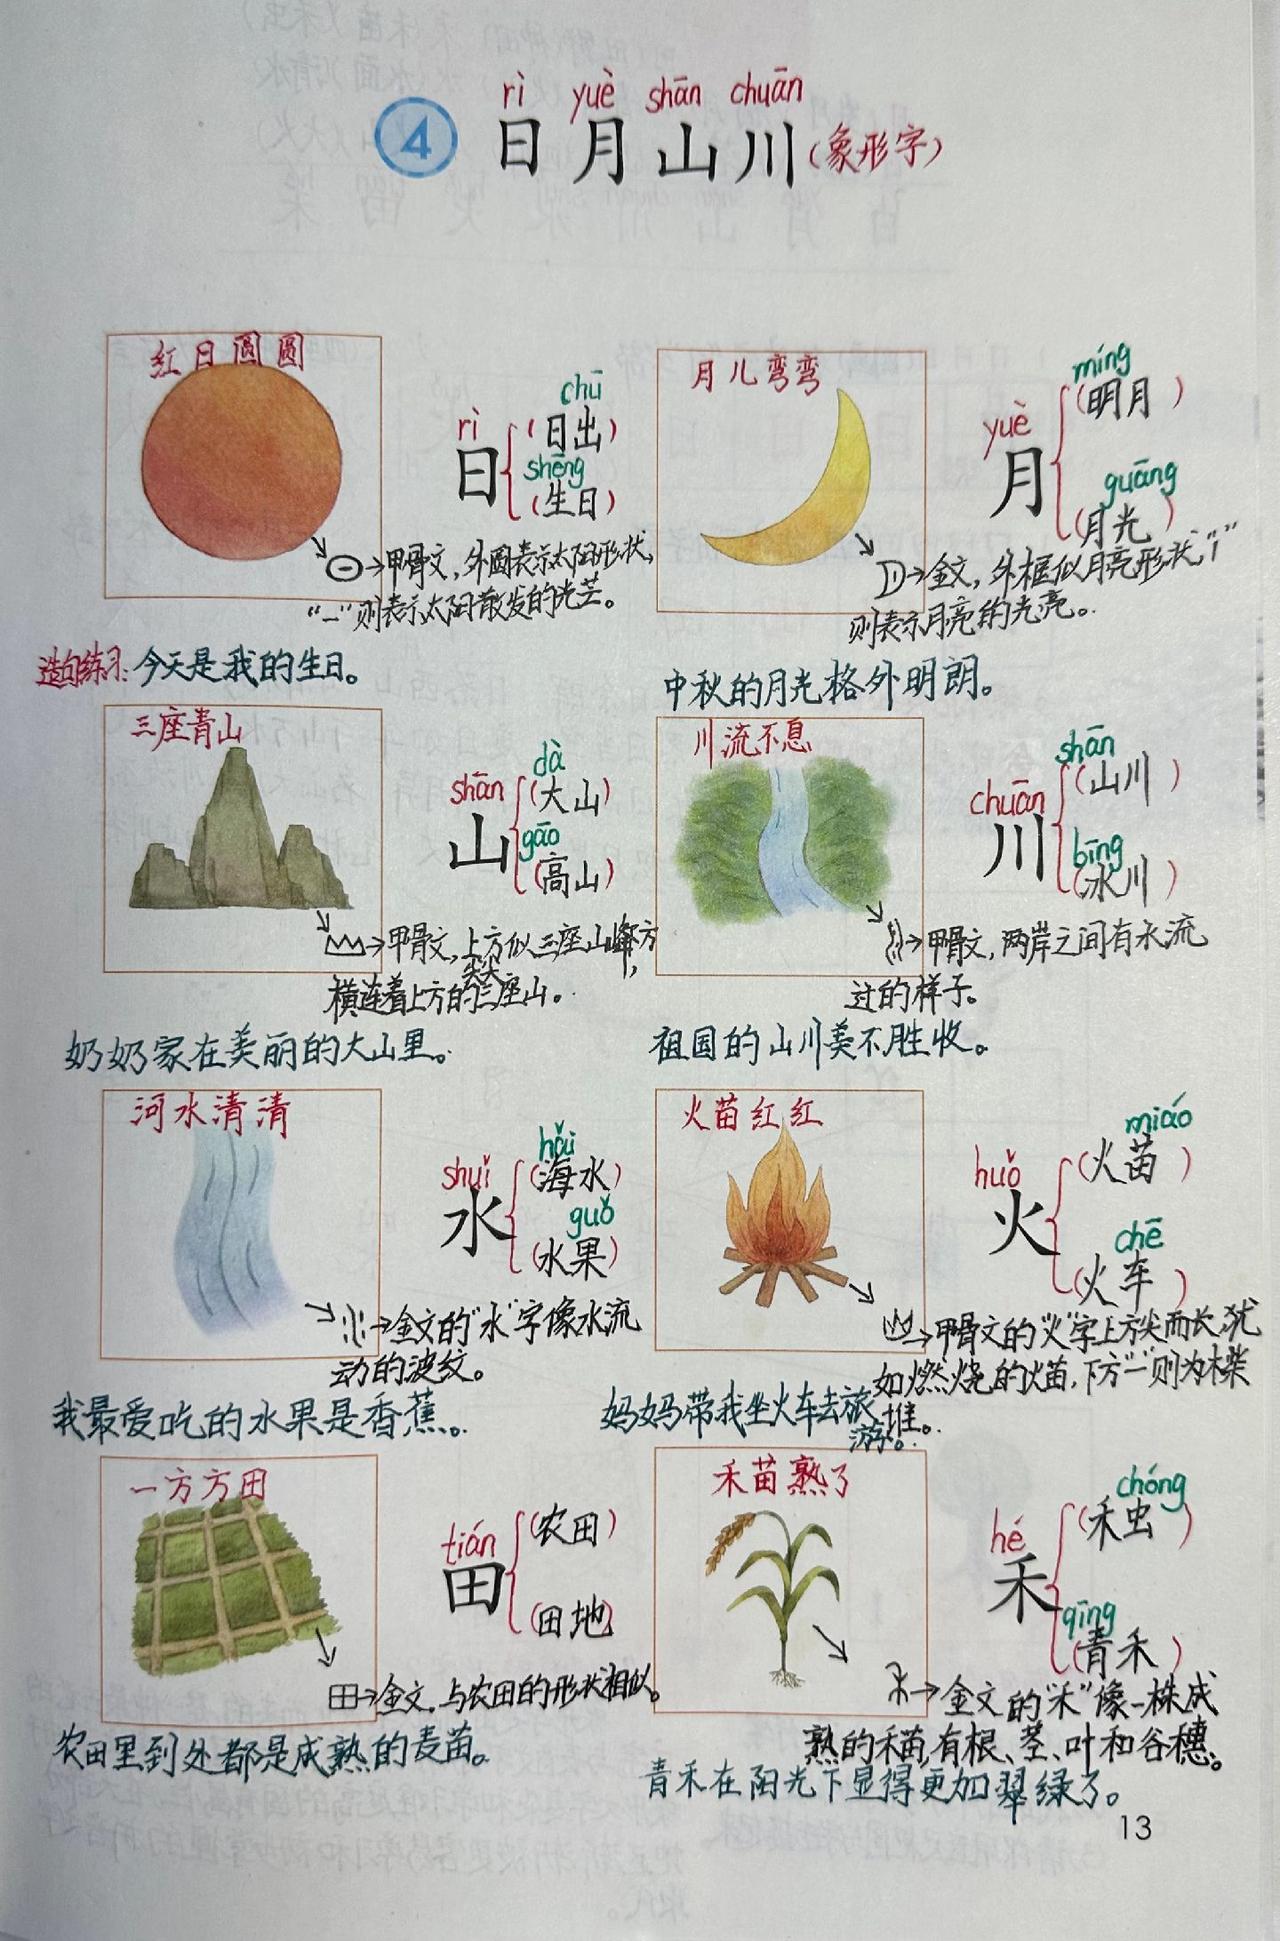 rì yuè shān chuān
④ 日月山川(象形字)
红日圆圆
rì
日
chū
(日出)
shēng
(生日)
→甲骨文,外圆表示太阳形状,
“一”则表示太阳散发的光芒。
造句练习:今天是我的生日。
月儿弯弯
yuè
月
míng
(明月)
guāng
(月光)
→金文,外框似月亮形状,“1”
则表示月亮的光亮。
中秋的月光格外明朗。
三座青山
shān
山
dà
(大山)
gāo
(高山)
→甲骨文,上方似三座山峰,下方
横连着上方的三座尖尖山。
奶奶家在美丽的大山里。
川流不息
chuān
川
shān
(山川)
bīng
(冰川)
→甲骨文,两岸之间有水流
过的样子。
祖国的山川美不胜收。
河水清清
shuǐ
水
hǎi
(海水)
guǒ
(水果)
→金文的“水”字像水流
动的波纹。
我最爱吃的水果是香蕉。
火苗红红
huǒ
火
miáo
(火苗)
chē
(火车)
→甲骨文的“火”字上方尖而长,犹
如燃烧的火苗,下方“一”则为木柴
堆。
妈妈带我坐火车去旅
游。
一方方田
tián
田
(农田)
(田地)
田→金文,与农田的形状相似。
农田里到处都是成熟的麦苗。
禾苗熟了
hé
禾
chóng
(禾虫)
qīng
(青禾)
→金文的“禾”像一株成
熟的禾苗,有根、茎、叶和谷穗。
青禾在阳光下显得更加翠绿了。
13